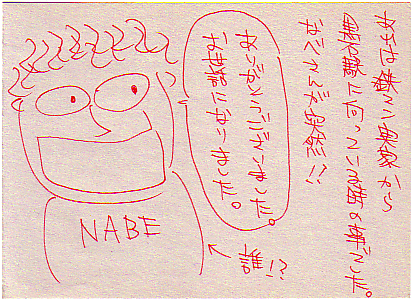 あれは 実家から
に向っている時の事でした。
なべさんが突然!!
ありがとうございました。
お世話になりました。
NABE
誰!?